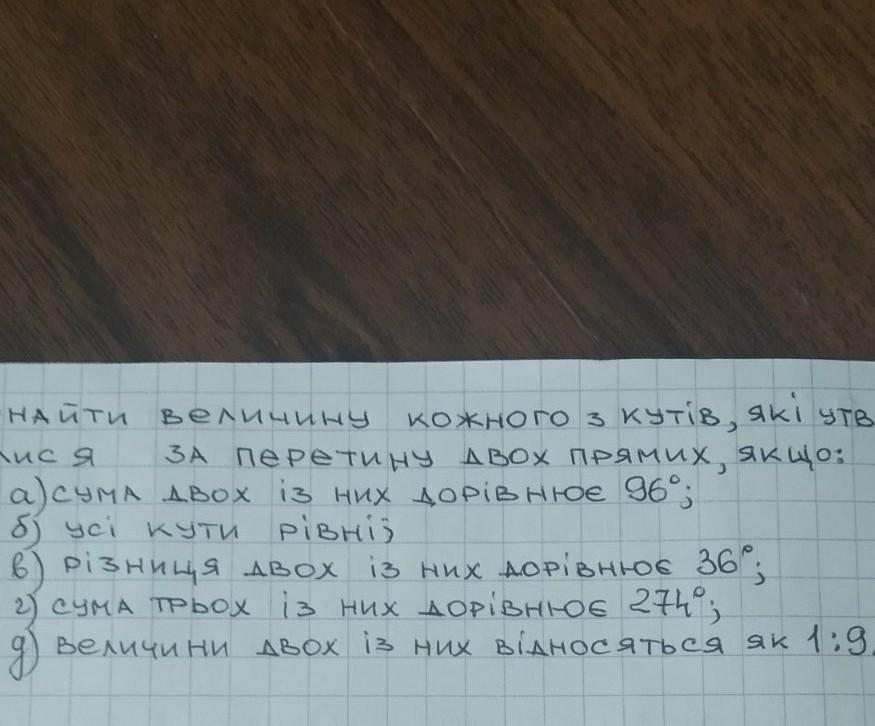 найти величину кожного з кутів, які утв
лися за перетину двох прямих, якщо:
а) сума двох із них дорівнює 96°;
б) усі кути рівні;
в) різниця двох із них дорівнює 36°;
г) сума трьох із них дорівнює 274°;
д) величини двох із них відносяться як 1:9.